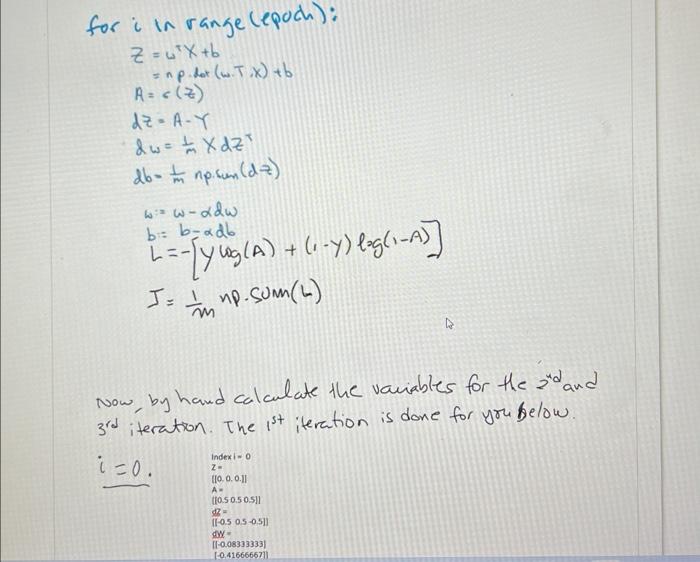 for i in range(epoch):
Z = wᵀX+b
= np.dot(w.T,X)+b
A = σ(Z)
dZ = A-Y
dw = 1/m X dZᵀ
db = 1/m np.sum(dz)
w := w-αdw
b := b-αdb
L = -[y log(A) + (1-y) log(1-A)]
J = 1/m np.sum(L)
Now, by hand calculate the variables for the 2nd and
3rd iteration. The 1st iteration is done for you below.
i=0.
Index i = 0
Z =
[[0. 0. 0.]]
A =
[[0.5 0.5 0.5]]
dZ =
[[-0.5 0.5 -0.5]]
dW =
[[-0.08333333]
[-0.41666667]]